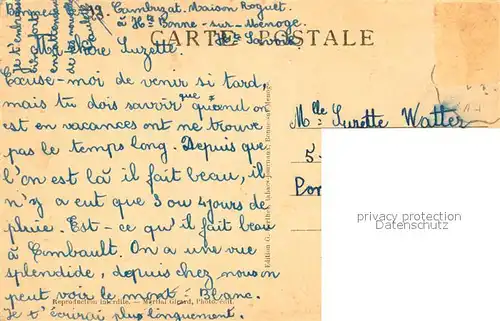 Cambuzat. Maison Roguet.
à Hte Bonne-sur-Menoge.
Hte Savoie
CARTE POSTALE
Ma Chère Suzette
Excuse-moi de venir si tard,
mais tu dois savoir que quand on
est en vacances ont ne trouve
pas le temps long. Depuis que
l'on est là il fait beau, il
n'y a eut que 3 ou 4 jours de
pluie. Est-ce qu'il fait beau
à Combault. On a une vue
splendide, depuis chez nous on
peut voir le mont-Blanc.
Je t'écrirai plus longuement.
Je t'embrasse
bien fort
en attendant
de tes nouvelles
Mlle Suzette Watter
5
Reproduction interdite. — Martial Girard, Photo. édit.
privacy protection
Datenschutz